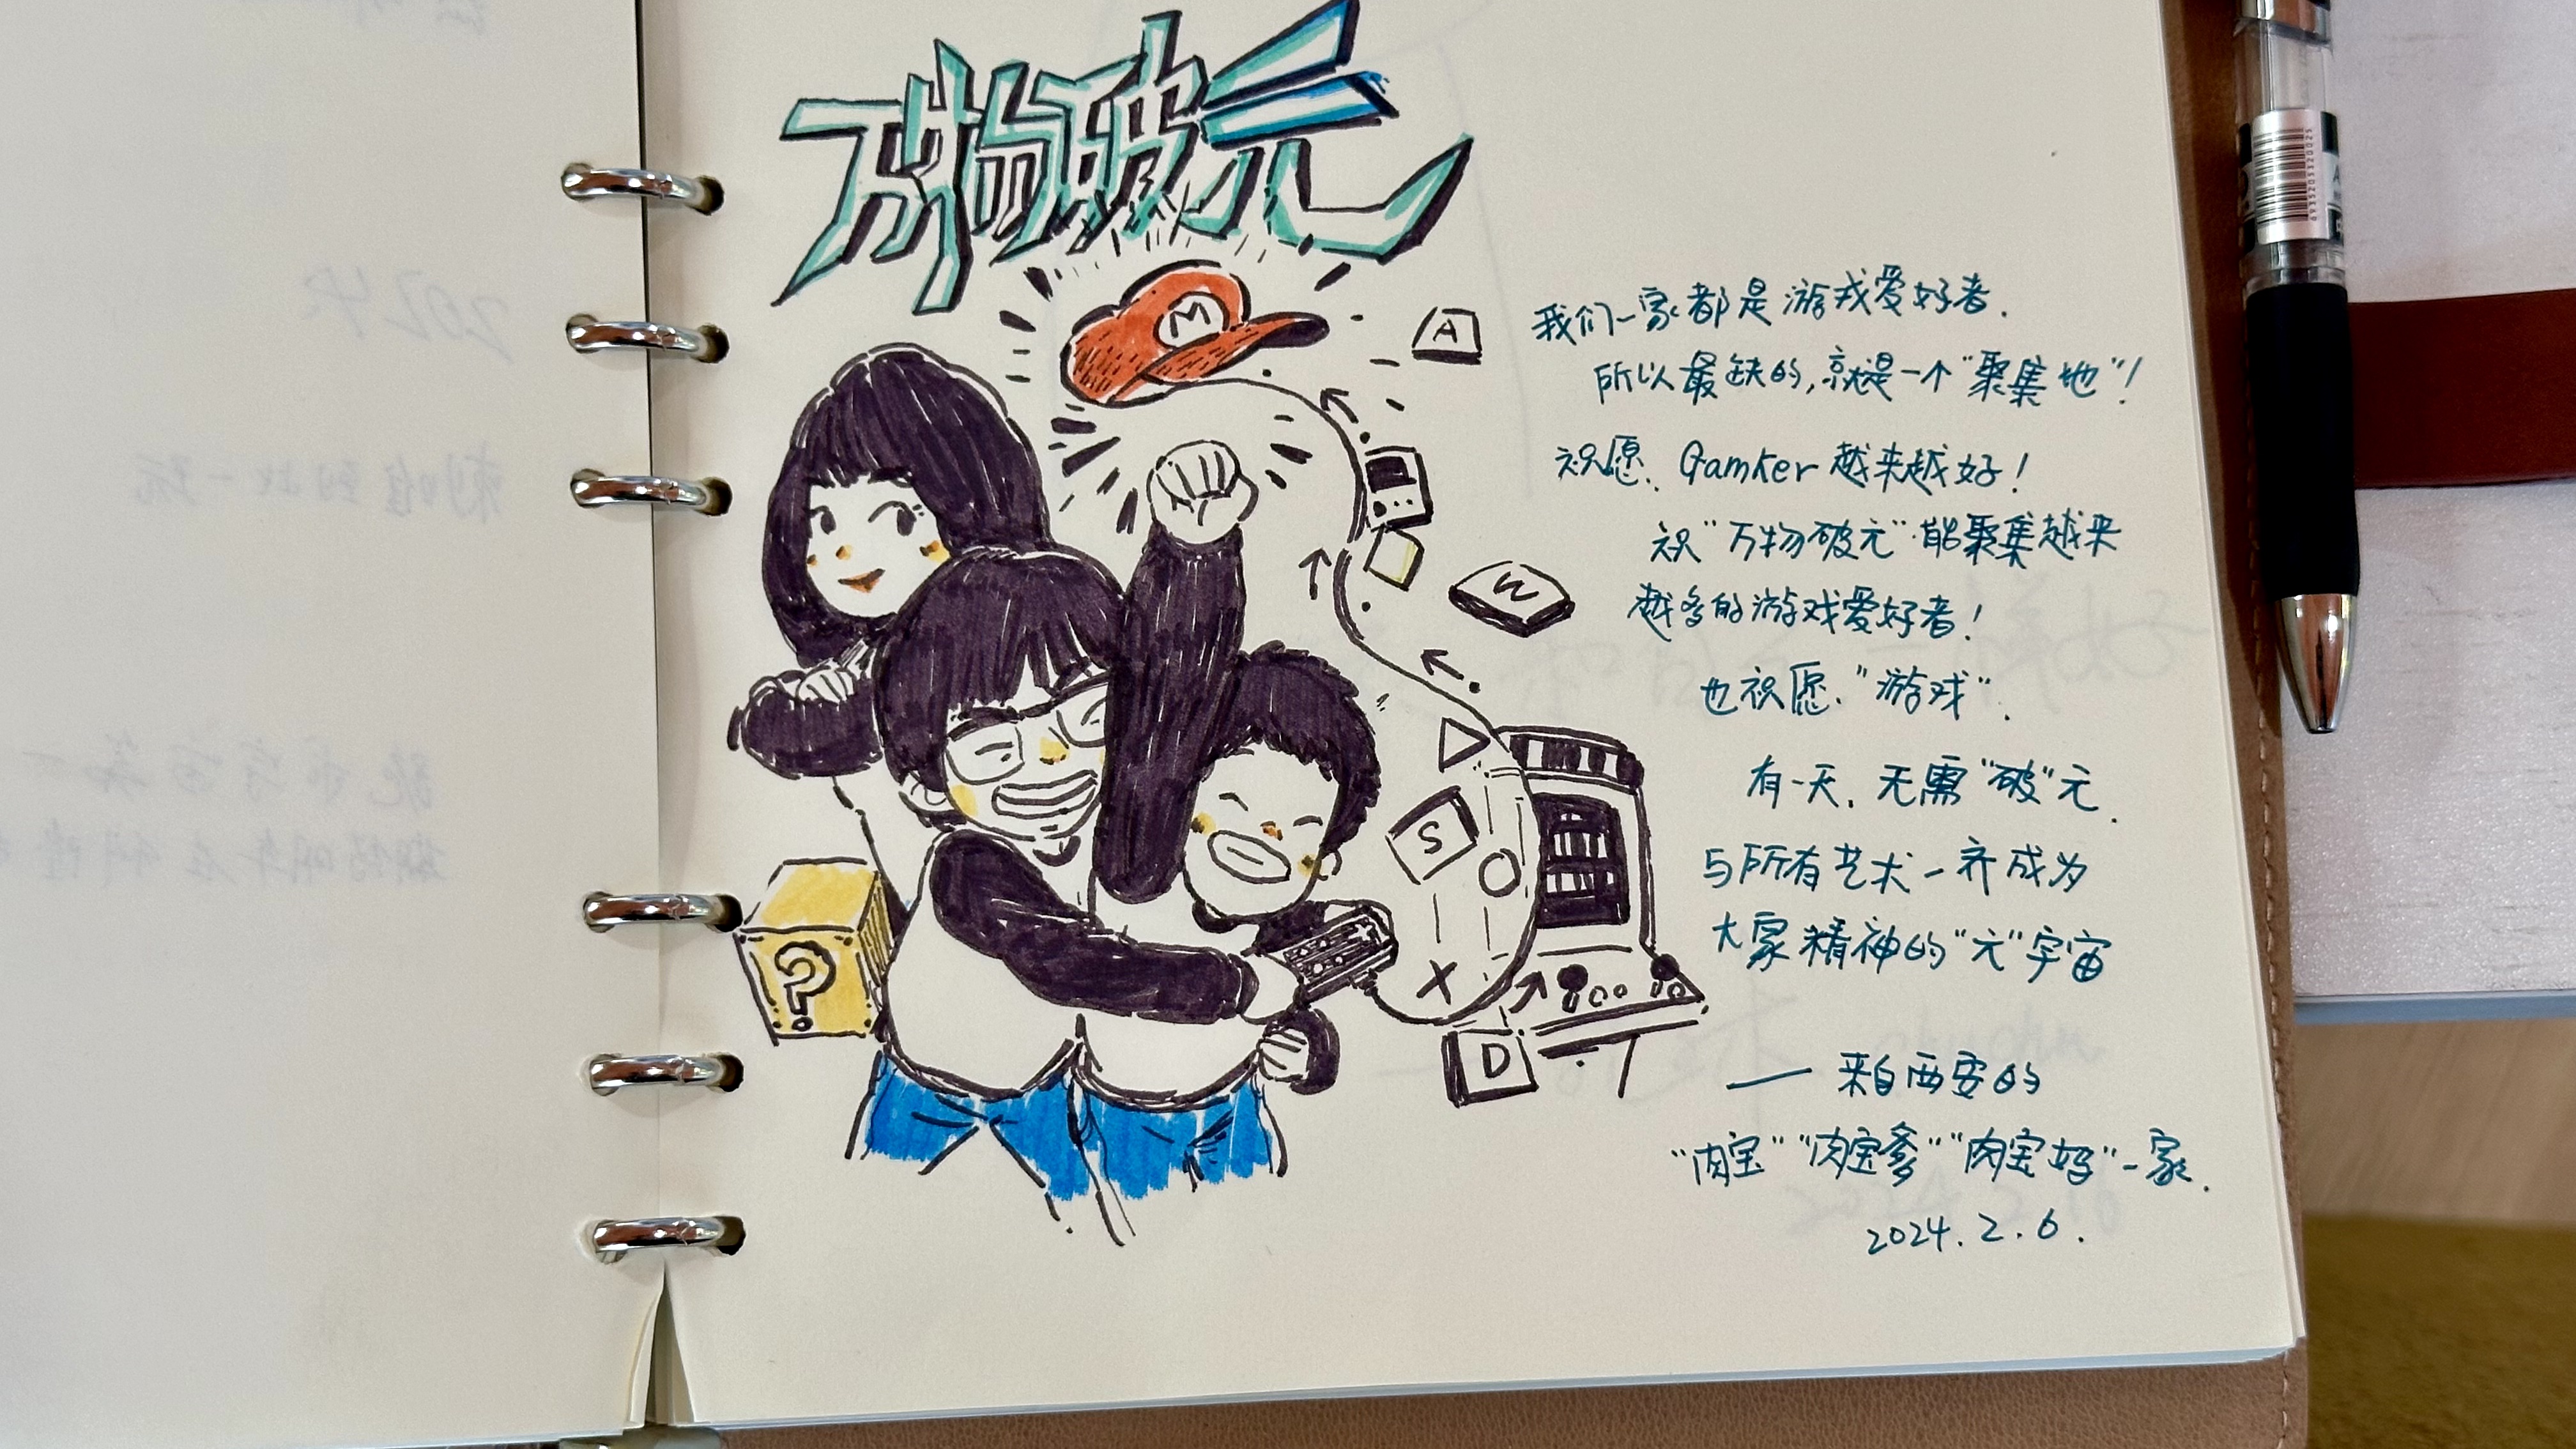 万物破元
M
A
我们一家都是游戏爱好者.
所以最缺的,就是一个"聚集地"!
祝愿. Gamker 越来越好!
祝"万物破元"能聚集越来
越多的游戏爱好者!
也祝愿."游戏".
有一天. 无需"破"元.
与所有艺术一齐成为
大家精神的"元"宇宙
—— 来自西安的
"肉宝""肉宝爹""肉宝妈"一家.
2024.2.6.
W
S
X
D
?
2024